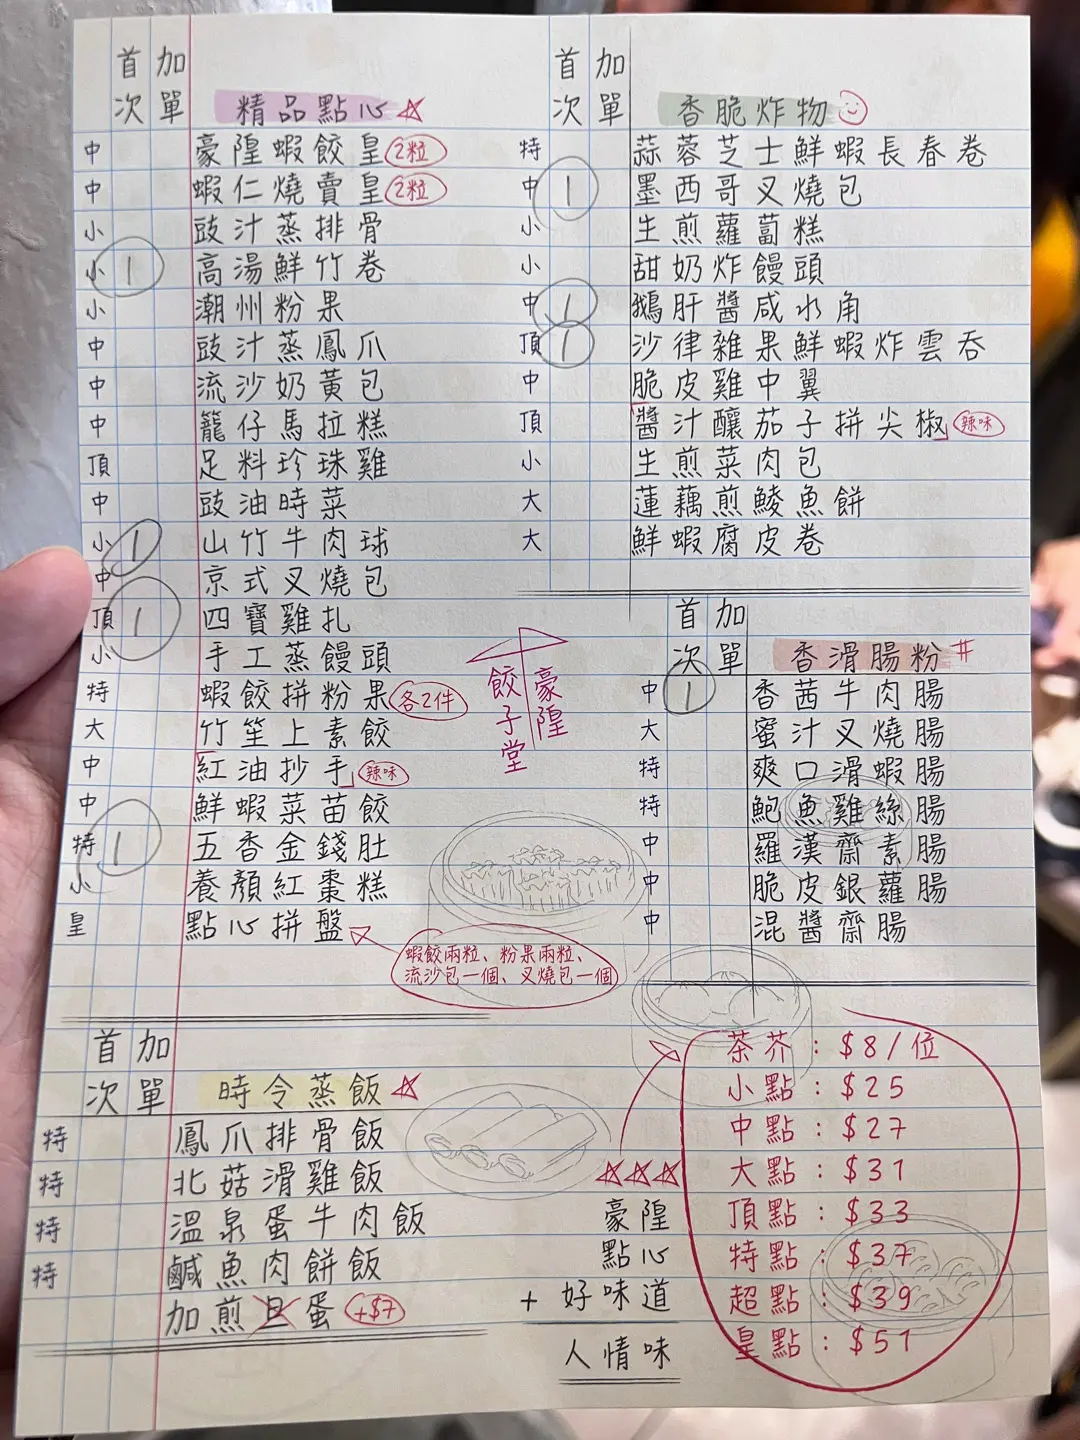 首次 加單 精品點心
中 豪隍蝦餃皇 2粒
中 蝦仁燒賣皇 2粒
小 豉汁蒸排骨
小 1 高湯鮮竹卷
小 潮州粉果
中 豉汁蒸鳳爪
中 流沙奶黃包
中 籠仔馬拉糕
頂 足料珍珠雞
中 豉油時菜
小 1 山竹牛肉球
中 京式叉燒包
頂 1 四寶雞扎
小 手工蒸饅頭
特 蝦餃拼粉果 各2件
大 竹笙上素餃
中 「紅油抄手」 辣味
中 鮮蝦菜苗餃
特 1 五香金錢肚
小 養顏紅棗糕
皇 點心拼盤
蝦餃兩粒、粉果兩粒、
流沙包一個、叉燒包一個
首次 加單 香脆炸物
特 蒜蓉芝士鮮蝦長春卷
中 1 墨西哥叉燒包
小 生煎蘿蔔糕
小 甜奶炸饅頭
中 1 鵝肝醬咸水角
頂 1 沙律雜果鮮蝦炸雲吞
中 脆皮雞中翼
頂 「醬汁釀茄子拼尖椒」 辣味
小 生煎菜肉包
大 蓮藕煎鯪魚餅
大 鮮蝦腐皮卷
豪隍
餃子堂
首次 加單 香滑腸粉 #
中 1 香茜牛肉腸
大 蜜汁叉燒腸
特 爽口滑蝦腸
特 鮑魚雞絲腸
中 羅漢齋素腸
中 脆皮銀蘿腸
中 混醬齋腸
首次 加單 時令蒸飯
特 鳳爪排骨飯
特 北菇滑雞飯
特 溫泉蛋牛肉飯
特 鹹魚肉餅飯
加煎蛋 +$7
豪隍
點心
+ 好味道
人情味
茶芥:$8/位
小點:$25
中點:$27
大點:$31
頂點:$33
特點:$37
超點:$39
皇點:$51